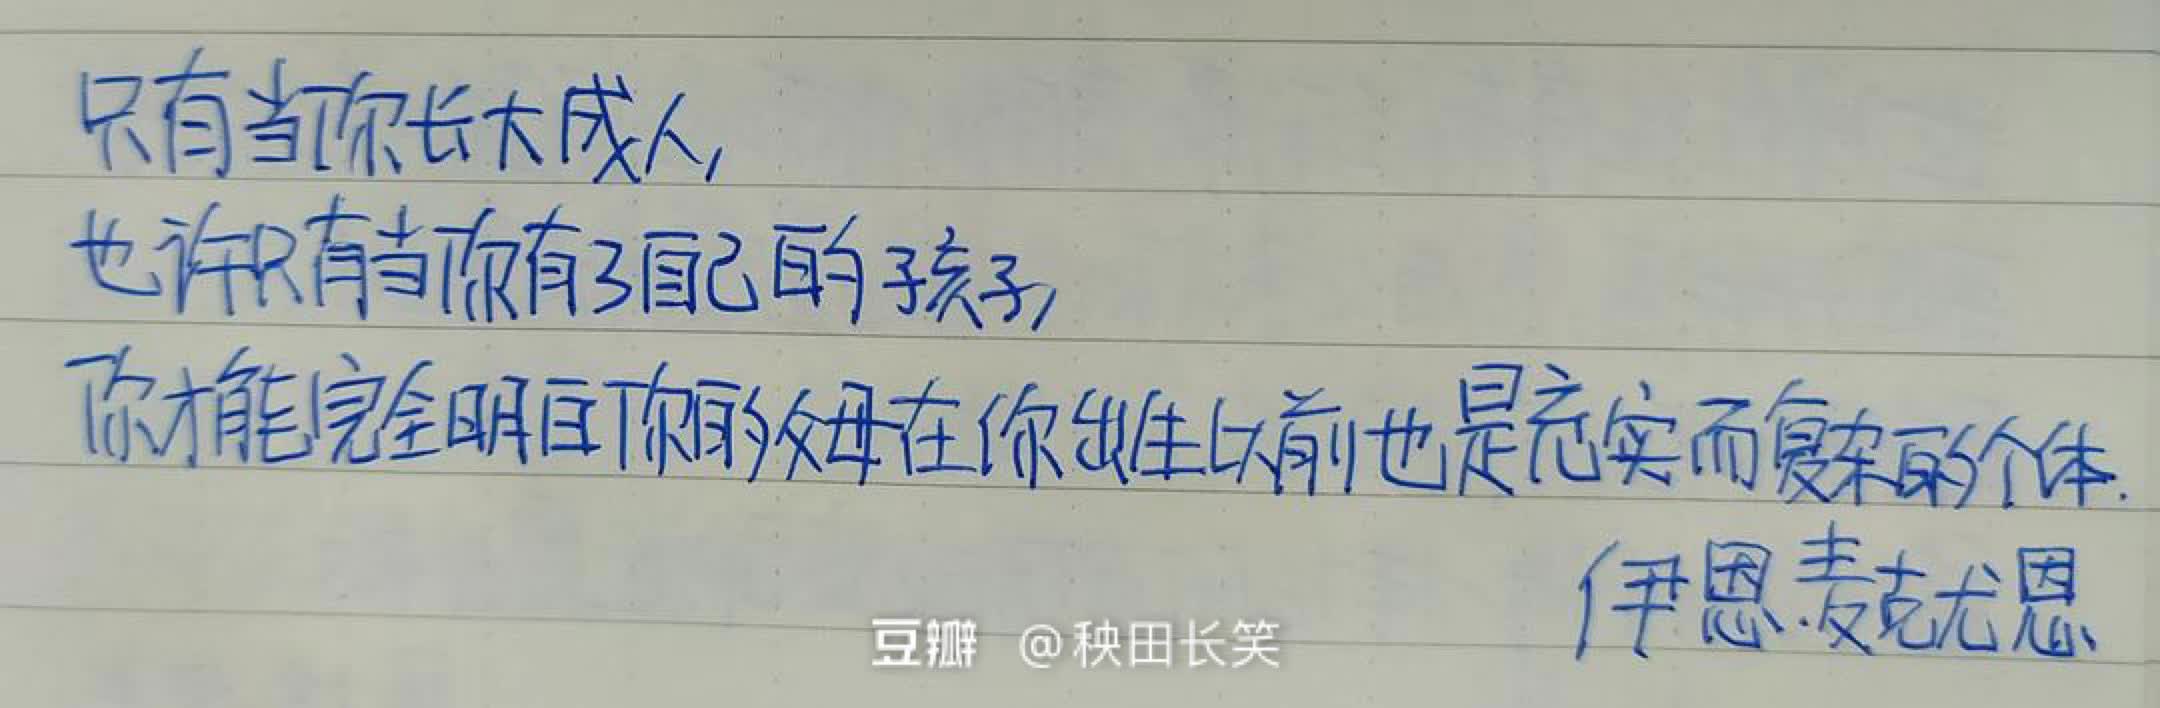 只有当你长大成人,
也许只有当你有了自己的孩子,
你才能完全明白你的父母在你出生以前也是充实而复杂的个体.
伊恩·麦克尤恩
豆瓣 @秧田长笑